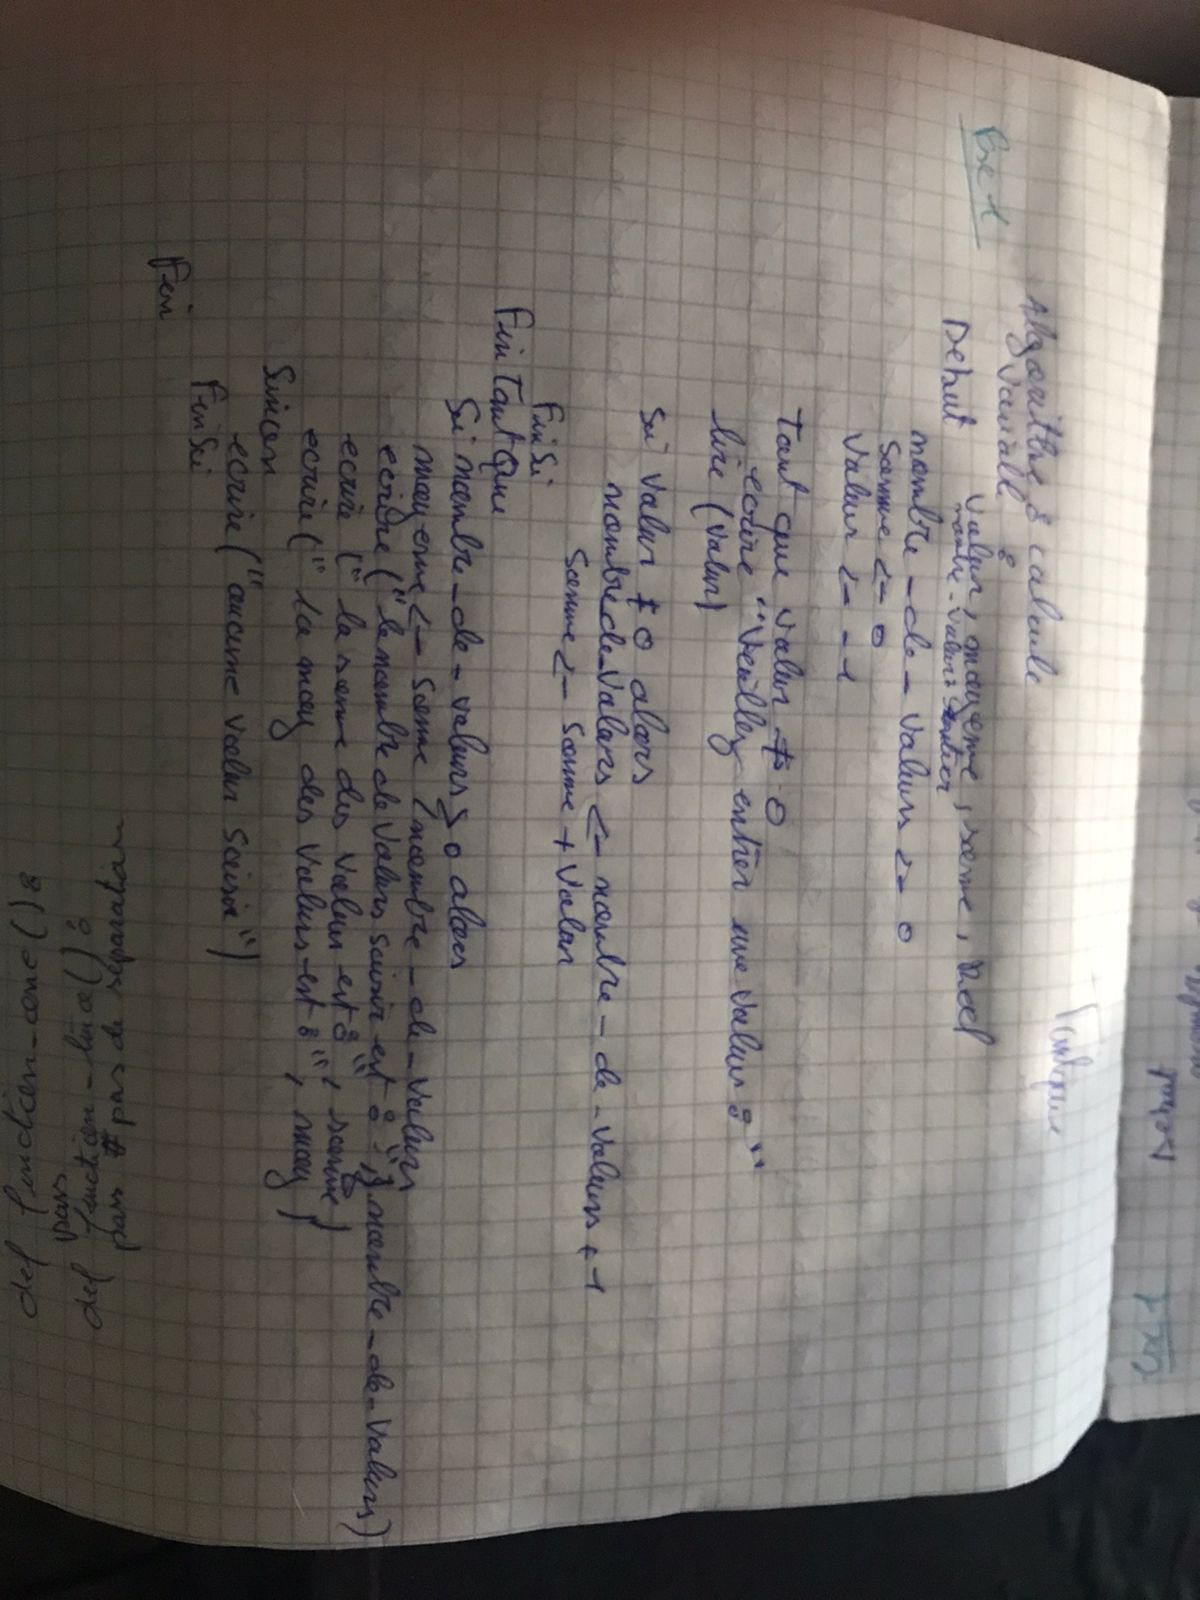 Exe 1
Algorithme : calcule
Variable :
Valeur, moyenne, somme, Reel
nombre-valeurs : entier
Debut
nombre-de-valeurs <- 0
Somme <- 0
Valeur <- -1
Tant que valeur ≠ 0
ecrire "Veuillez entrer une valeur : "
lire (valeur)
Si valeur ≠ 0 alors
nombre de-valeurs <- nombre-de-valeurs + 1
Somme <- Somme + Valeur
FinSi
FinTantQue
Si nombre-de-valeurs > 0 alors
moyenne <- Somme / nombre-de-valeurs
ecrire ("le nombre de valeurs saisir est : ", nombre-de-valeurs)
ecrire ("la somme des valeurs est : ", somme)
ecrire ("la moy des valeurs est : ", moy)
Sinon
ecrire ("aucune valeur saisie")
FinSi
Fin
pass # pas de séparation
def function-
pass
def function-one() :
Debut